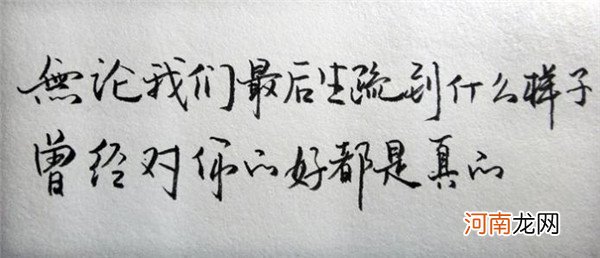 無论我们最后生疏到什么样子
曾经对你的好都是真的
河南龙网